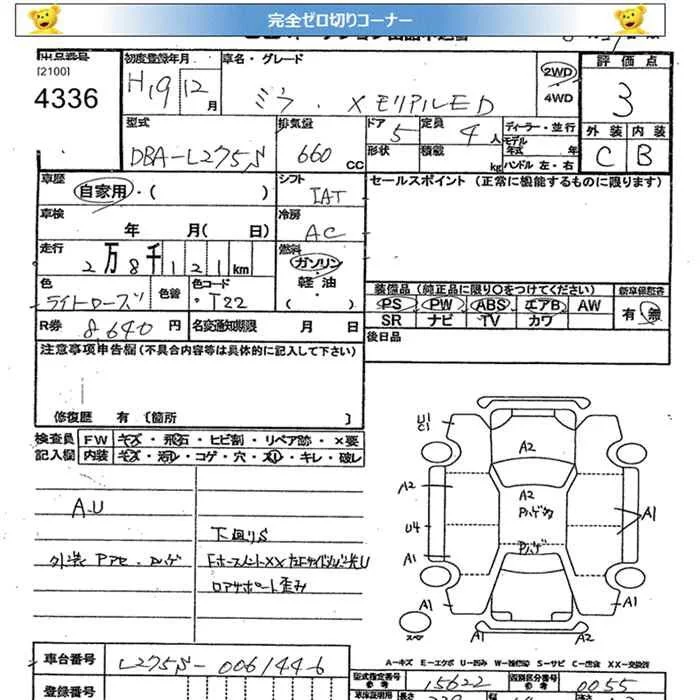 完全ゼロ切りコーナー
出品番号
[2100]
4336
初度登録年月
H19 12 月
車名・グレード
ミラ ・ X メモリアルED
2WD
4WD
評価点
3
外装 内装
C B
型式
DBA-L275S
排気量
660 CC
ドア 5
形状
定員 4 人
積載 kg
ディーラー・並行
モデル年式 年
ハンドル 左・右
車歴
自家用・( )
シフト
IAT
セールスポイント (正常に機能するものに限ります)
車検
年 月( 日)
冷房
AC
走行
2万8千121km
燃料
ガソリン
軽油
( )
色
ライトローズ
色替
色コード
T22
装備品(純正品に限り○をつけてください)
PS PW ABS エアB AW
SR ナビ TV カワ
新車保証書
有 無
R券 8,640 円
名変通知期限 月 日
後日品
注意事項申告欄(不具合内容等は具体的に記入して下さい)
修復歴 有 〔箇所 〕
検査員
記入欄
FW キズ・飛石・ヒビ割・リペア跡・×要
内装 キズ・汚レ・コゲ・穴・スレ・キレ・破レ
A-U
下廻りS
外装 Pアセ・ハゲ
U1
C1
A2
A2
A2
Pハゲ
A1
U4
A1
A1
A1
A1
スペア
車台番号
L275S-0061446
A-キズ E-エクボ U-凹み W-補修跡 S-サビ C-腐食 XX-交換済
型式指定番号
参考
15622
類別区分番号
参考
0055
登録番号
長さ